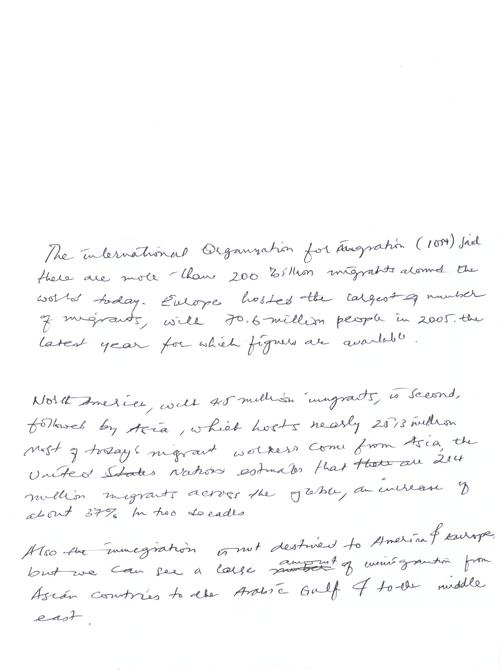 The international Organization for migration (IOM) said
there are more than 200 Billion migrants around the
world today. Europe hosted the largest of number
of migrants, with 70.6 million people in 2005. the
latest year for which figures are available.
North America, with 45 million immigrants, is second,
followed by Asia, which hosts nearly 25,3 million
Most of today's migrant workers come from Asia, the
United States Nations estimates that there are 214
million migrants across the globe, an increase of
about 37% In two decades
Also the immigration is not destined to America & europe.
but we can see a large number amount of immigration from
Asian countries to the Arabic Gulf & to the middle
east.